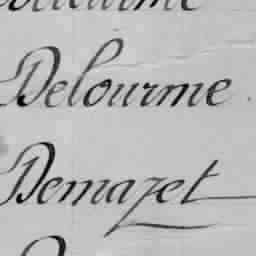 Delourme
Demazet